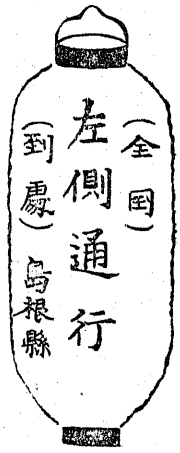 (全国)
左側通行
(到處)島根縣